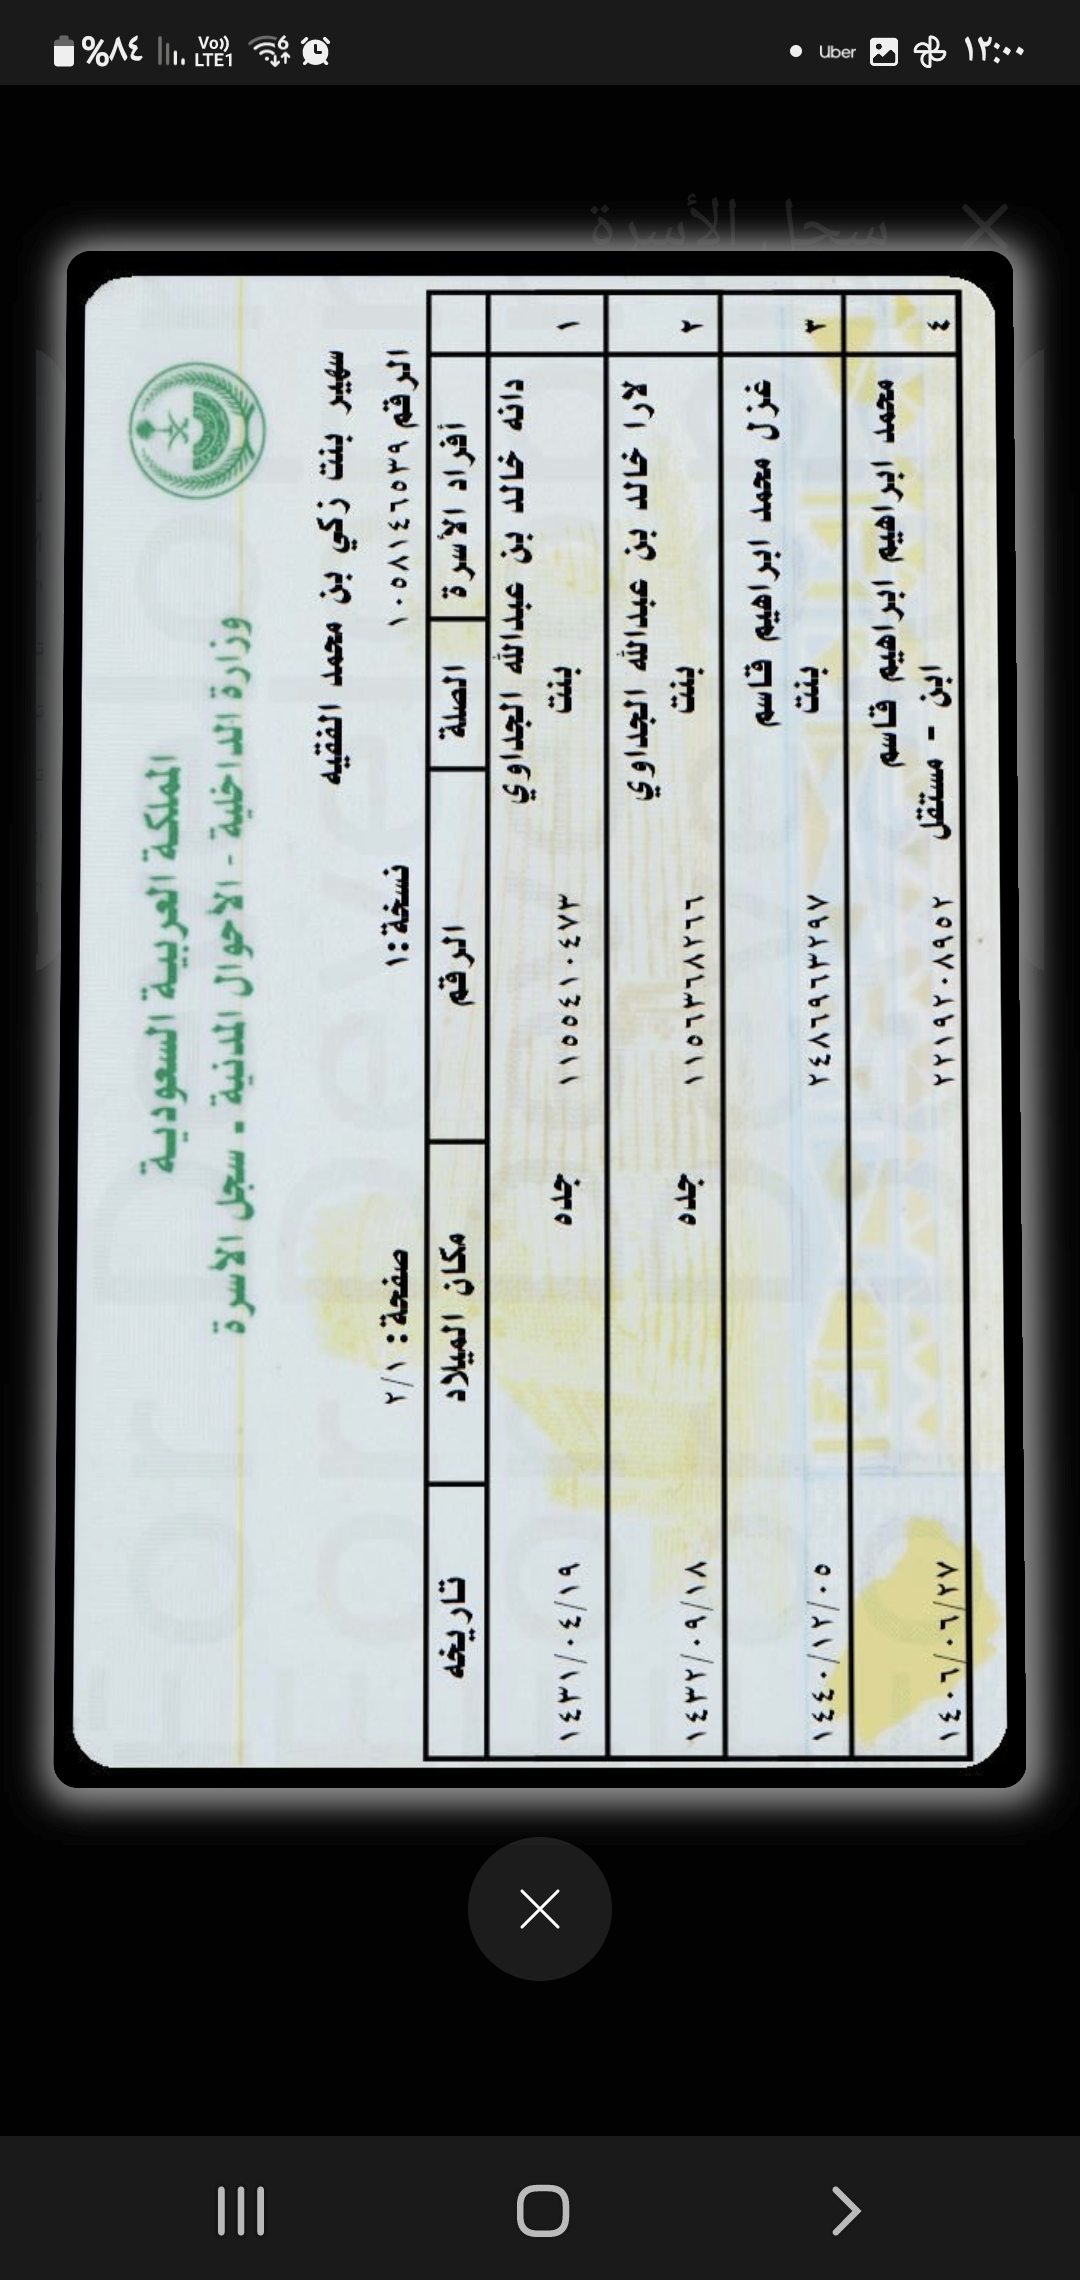 ٪٨٤
Vo))
LTE1
6
Uber
١٢:٠٠
سجل الأسرة
المملكة العربية السعودية
وزارة الداخلية - الاحوال المدنية - سجل الاسرة
سهير بنت زكي بن محمد الفقيه
الرقم ١٠٥٨١٤٦٥٣٩ نسخة: ١ صفحة: ٢/١
أفراد الأسرة الصلة الرقم مكان الميلاد تاريخه
١ دانه خالد بن عبدالله الجداوي
بنت ١١٥٥٤١٠٤٧٣ جده ١٤٣١/٠٤/١٩
٢ لارا خالد بن عبدالله الجداوي
بنت ١١٥٦٣٦٨٢٦٦ جده ١٤٣٢/٠٩/١٨
٣ غزل محمد ابراهيم قاسم
بنت ٢٤٨٦٩٦٣٢٩٧ ١٤٤٠/١٢/٠٥
٤ محمد ابراهيم ابراهيم قاسم
ابن - مستقل ٢٢١٩٢٠٨٩٥٢ ١٤٠٦/٠٦/٢٧